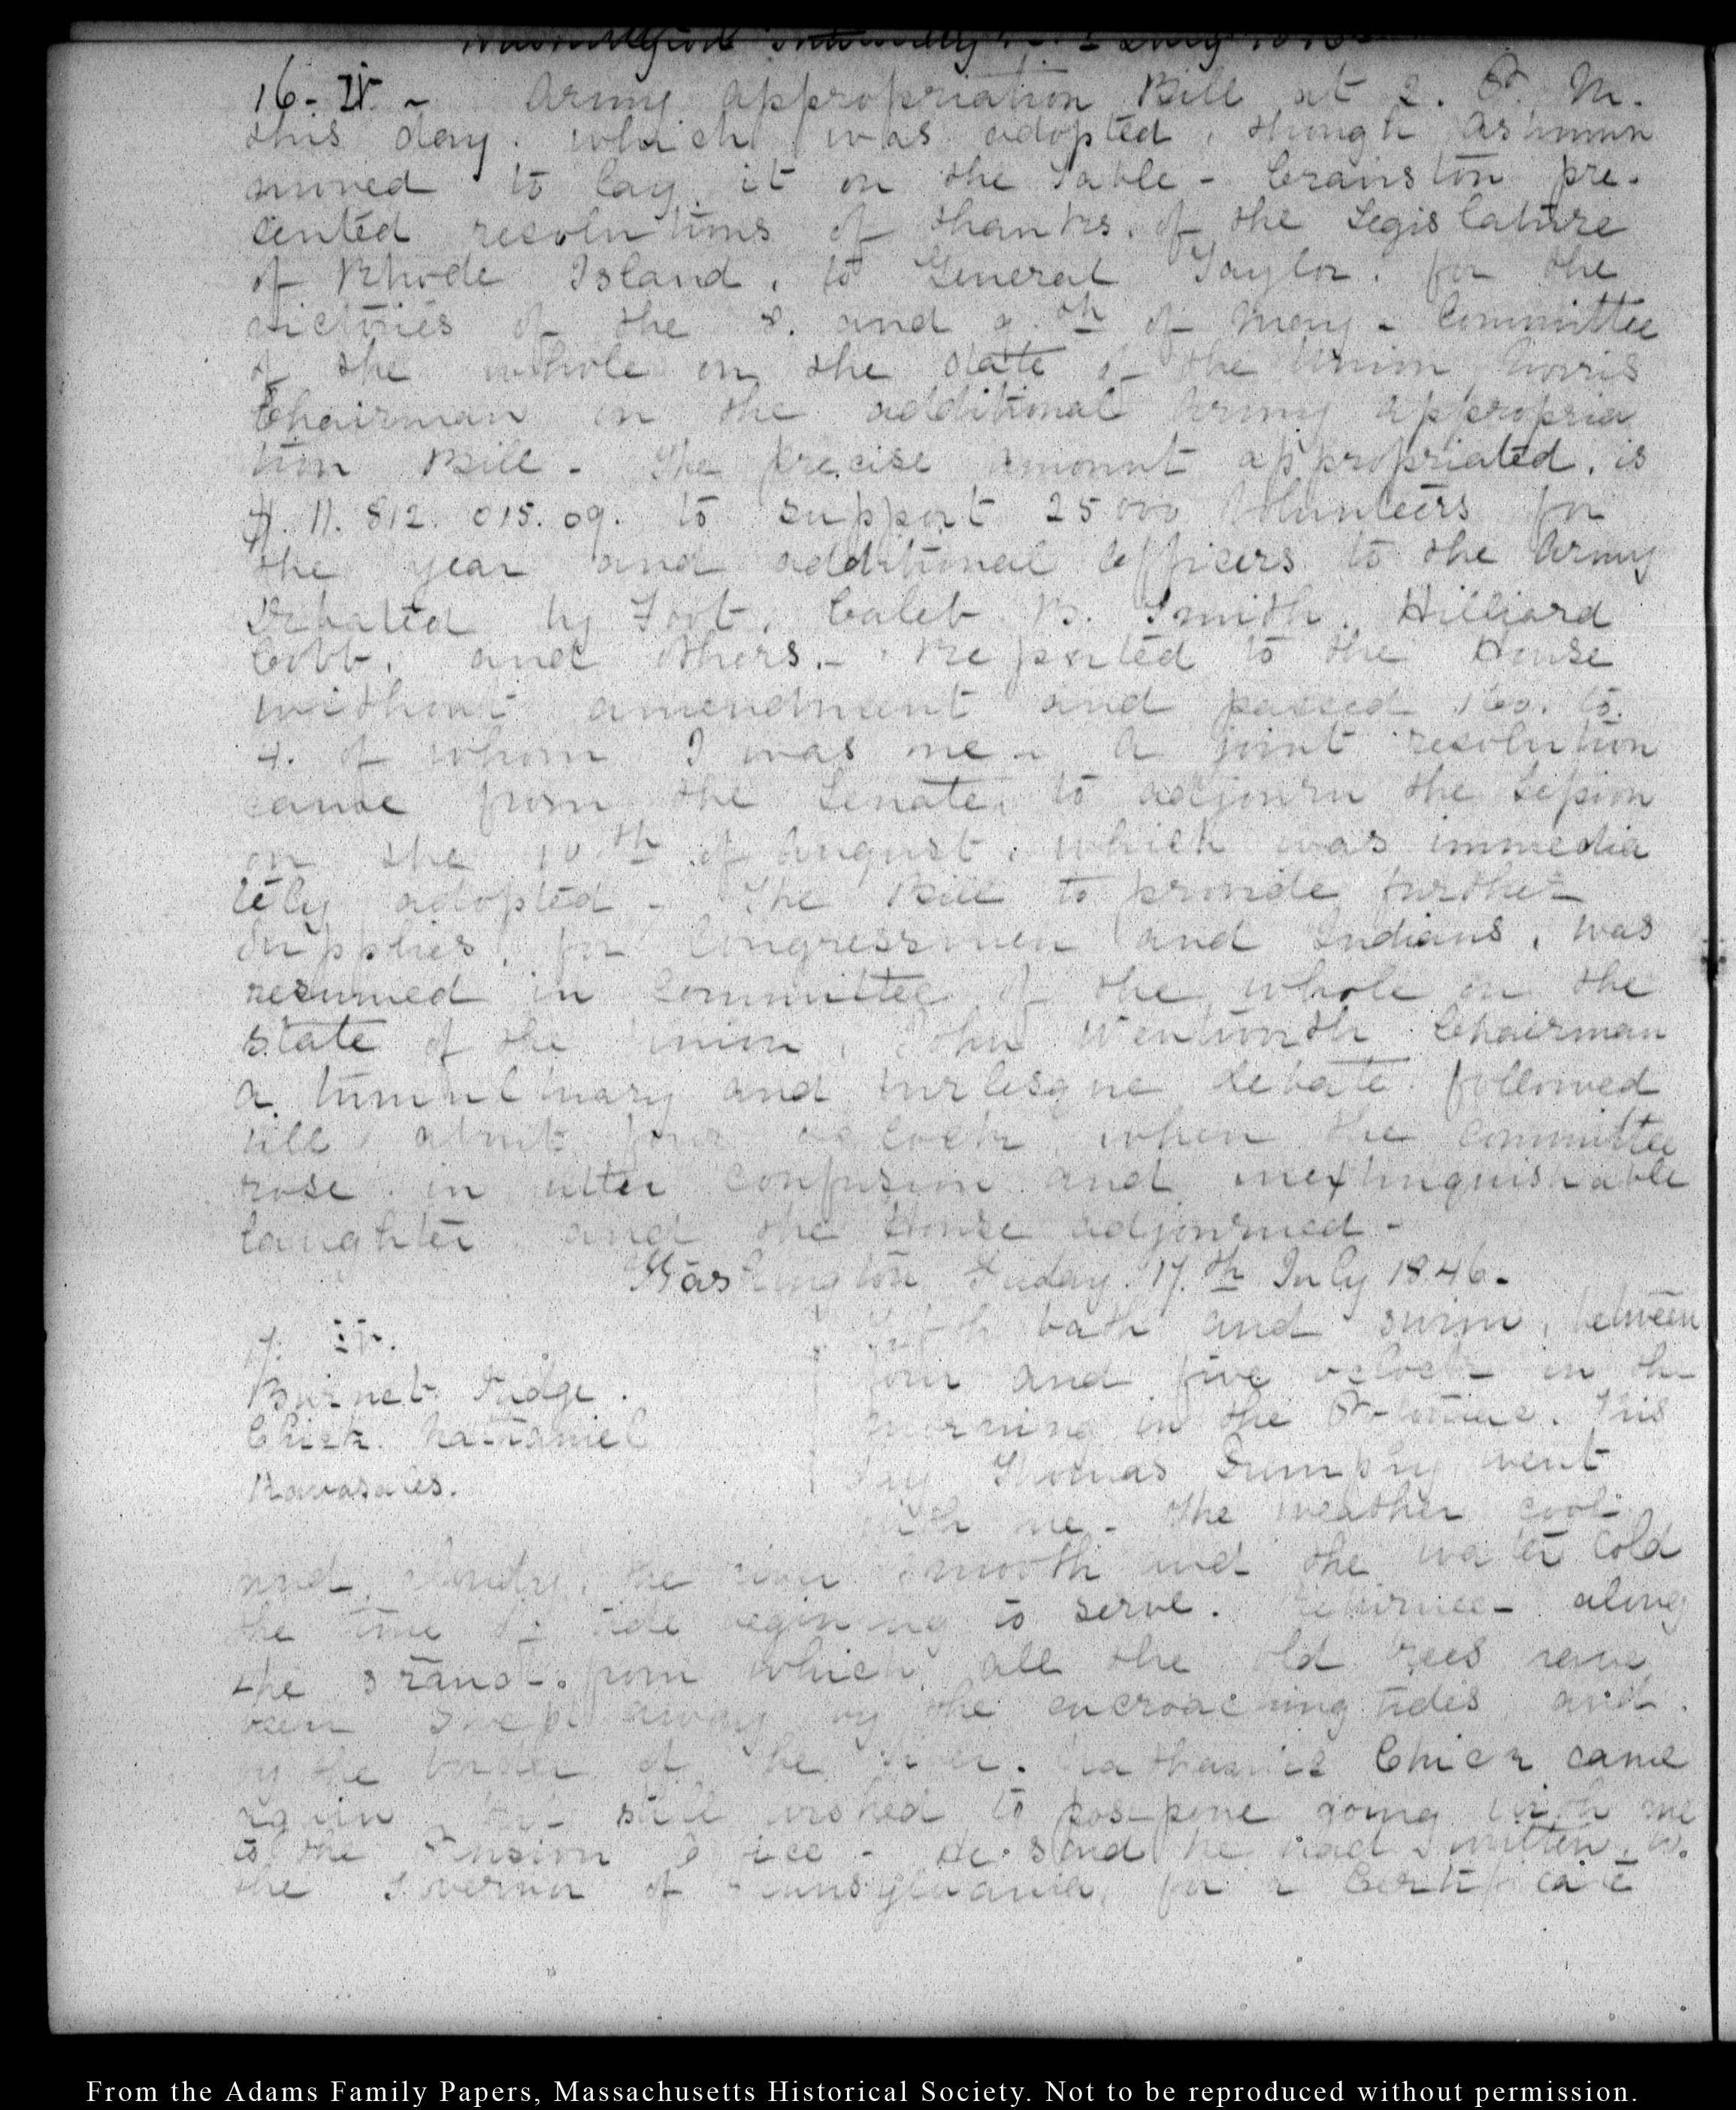 16-IV. - Army appropriation Bill at 2. P. M.
this day. which was adopted, though Ashmun
moved to lay it on the table - Cranston pre-
sented resolutions of thanks, of the Legislature
of Rhode Island, to General Taylor, for the
victories of the 8. and 9.th of May - Committee
of the whole on the state of the Union Norris
Chairman on the additional Army appropria
tion Bill - The precise amount appropriated, is
11. 812. 015. 09. to support 25000 Volunteers for
the year and additional officers to the Army
Debated by Foot, Caleb B. Smith, Hilliard
Cobb, and others. - Reported to the House
without amendment and passed to
4. of whom I was one - A joint resolution
came from the Senate, to adjourn the Session
on the 10th of August, which was immedia
tely adopted - The Bill to provide further
supplies, for Congressmen and Indians, was
resumed in Committee of the whole on the
state of the Union, John Wentworth Chairman
a tumultuary and burlesque debate followed
till about four o'clock when the committee
rose in utter confusion and inextinguishable
laughter and the House adjourned -
Washington Friday. 17.th July 1846 -
17.
Burnet. Judge.
Chick. Nathaniel

bath and swim, between
four and five o'clock in the
morning in the Potomac. This
day Thomas went
with me - The weather cool
and cloudy, the river smooth and the water cold
the time of tide beginning to serve. Returned along
the strand from which all the old trees have
been swept away by the encroaching tides and
by the border of the river. Nathaniel Chick came
again but still wished to postpone going with me
to the Pension Office - He said he had written to
the Governor of Pennsylvania, for a Certificate
From the Adams Family Papers, Massachusetts Historical Society. Not to be reproduced without permission.